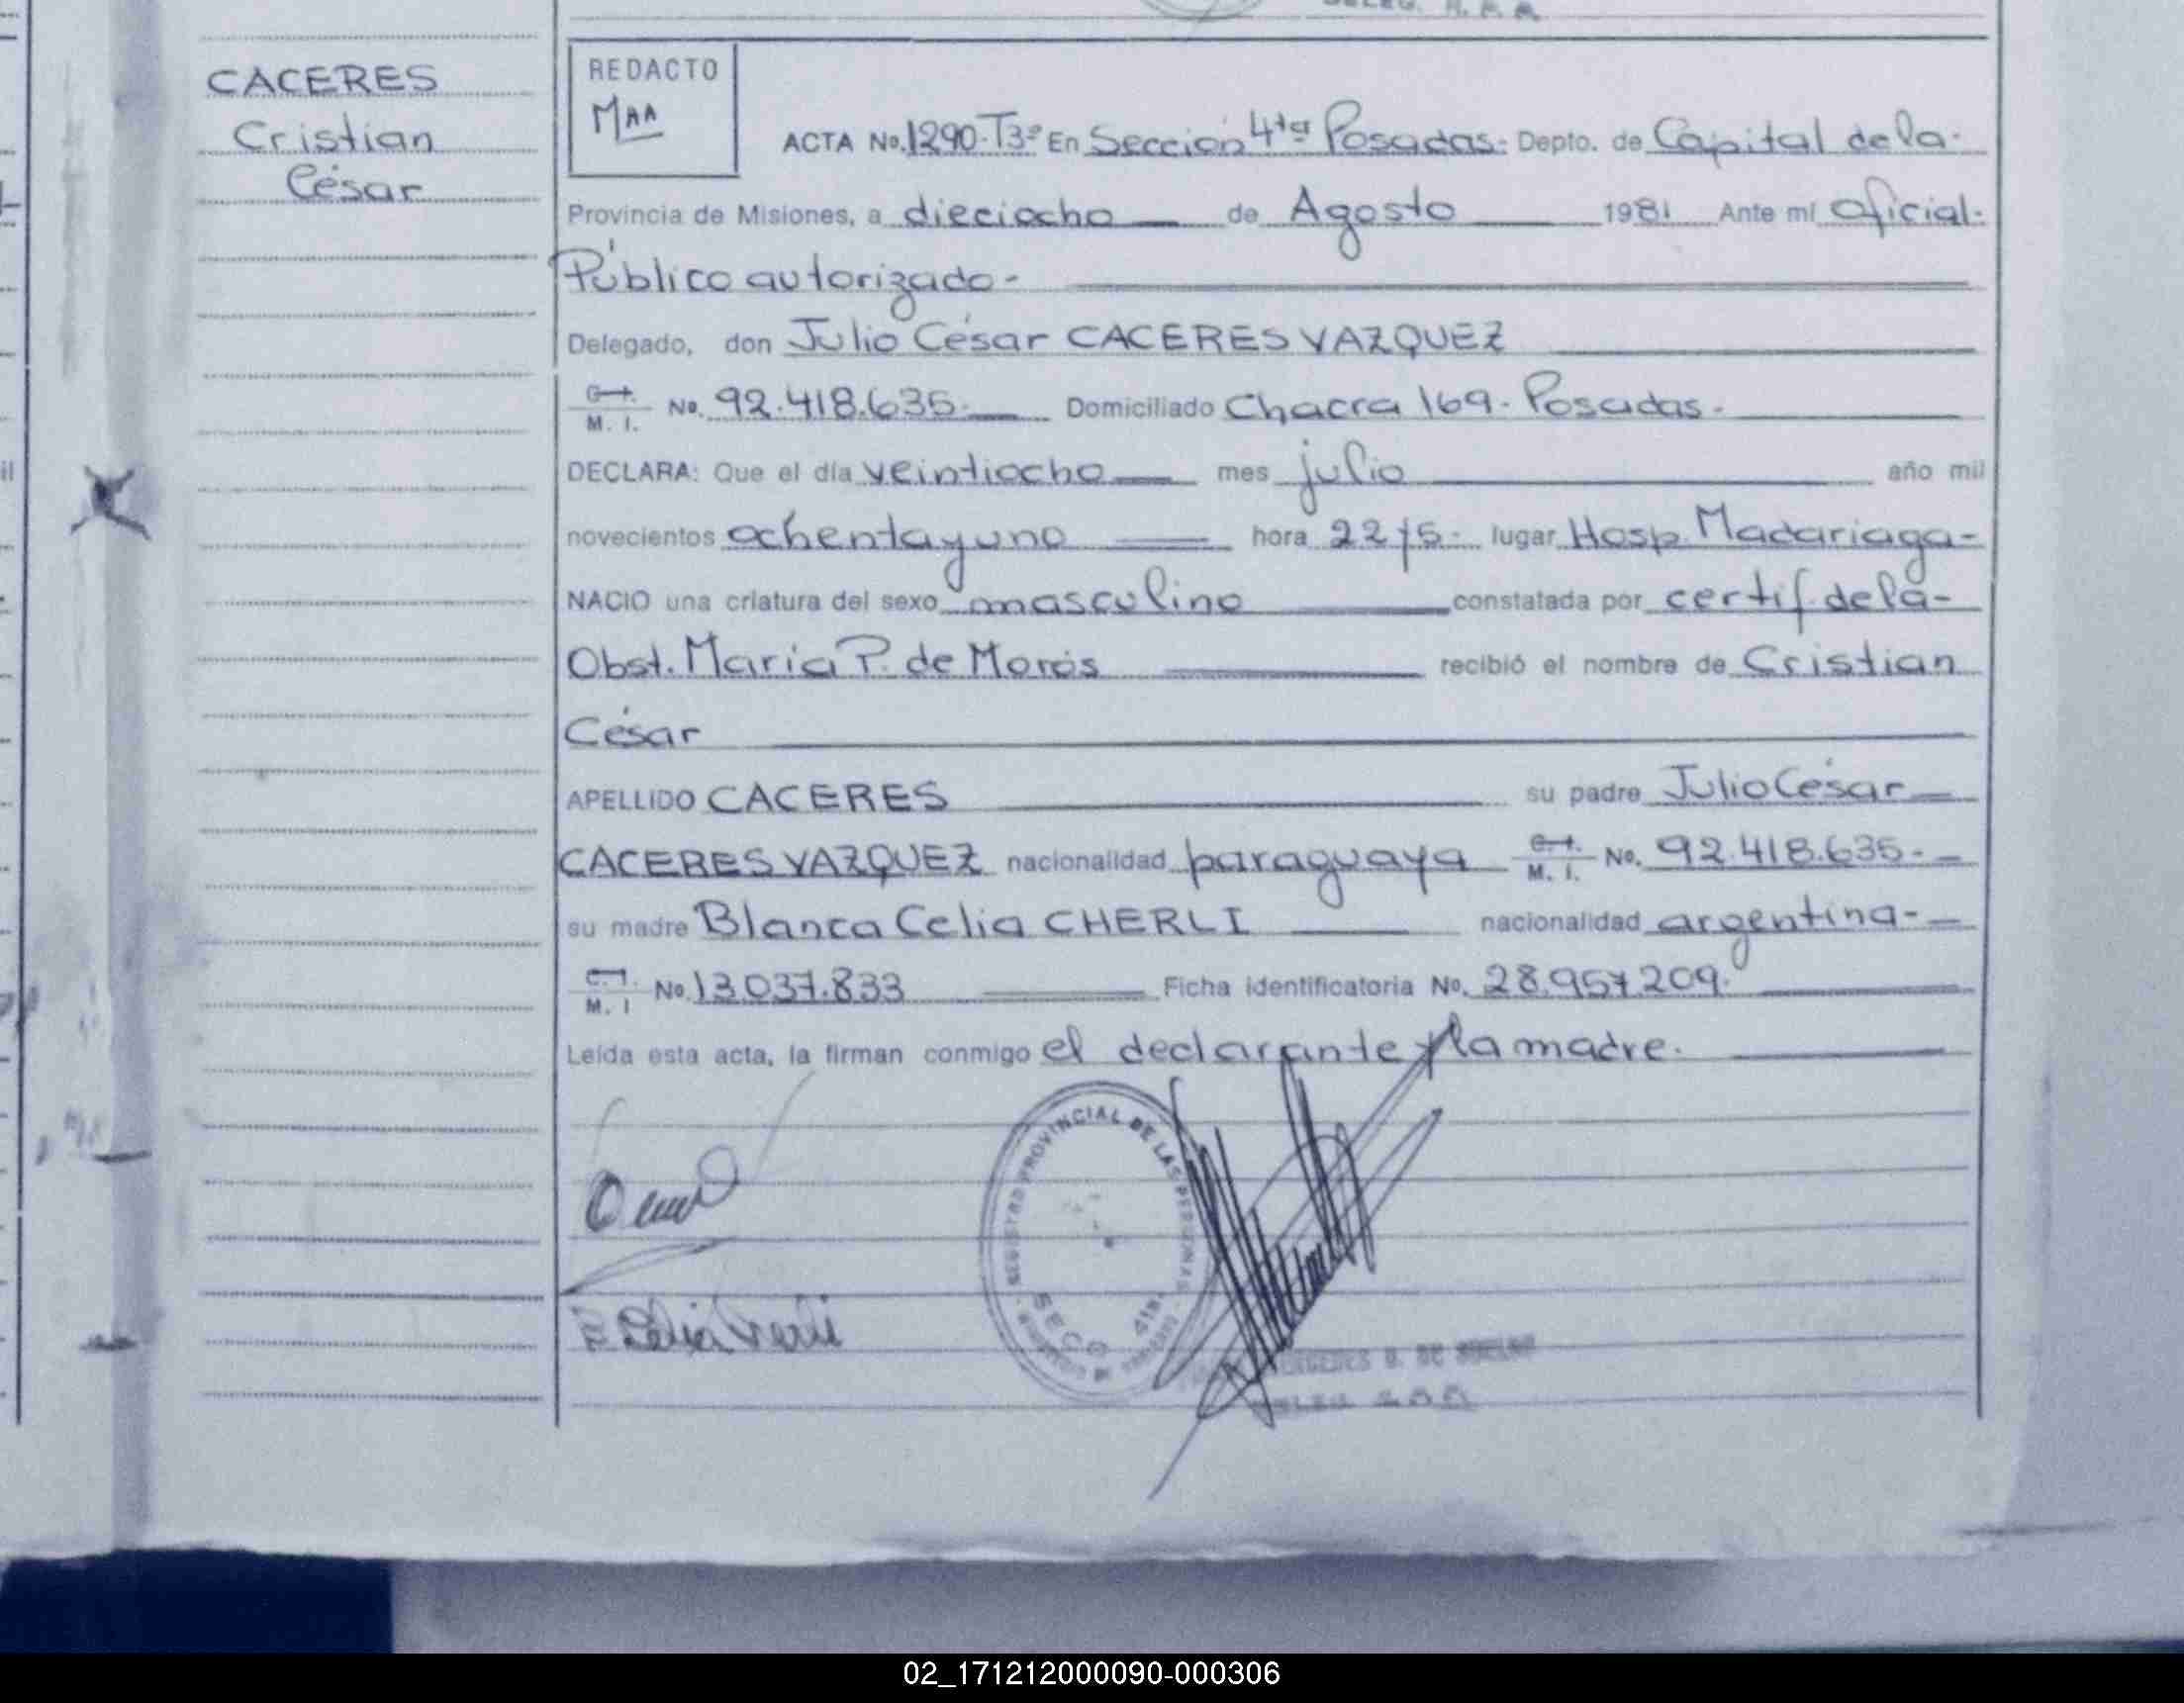 CACERES
Cristian
César
REDACTO
MAA
ACTA No. 1290-T3º En Sección 4ta Posadas. Depto. de Capital de la-
Provincia de Misiones, a dieciocho de Agosto 1981 Ante mí Oficial-
Público autorizado-
Delegado, don Julio César CACERES VAZQUEZ
M. I. No. 92.418.635- Domiciliado Chacra 169- Posadas-
DECLARA: Que el día veintiocho mes julio año mil
novecientos ochentayuno hora 22,15- lugar Hosp. Madariaga-
NACIO una criatura del sexo masculino constatada por certif. de la-
Obst. María P. de Morós recibió el nombre de Cristian
César
APELLIDO CACERES su padre Julio César
CACERES VAZQUEZ nacionalidad paraguaya M. I. No. 92.418.635-
su madre Blanca Celia CHERLI nacionalidad argentina-
C. I. M. I No. 13.037.833 Ficha identificatoria No. 28.957.209-
Leída esta acta, la firman conmigo el declarante y la madre.
REGISTRO PROVINCIAL DE LAS PERSONAS
SECC 4ta.
02_171212000090-000306